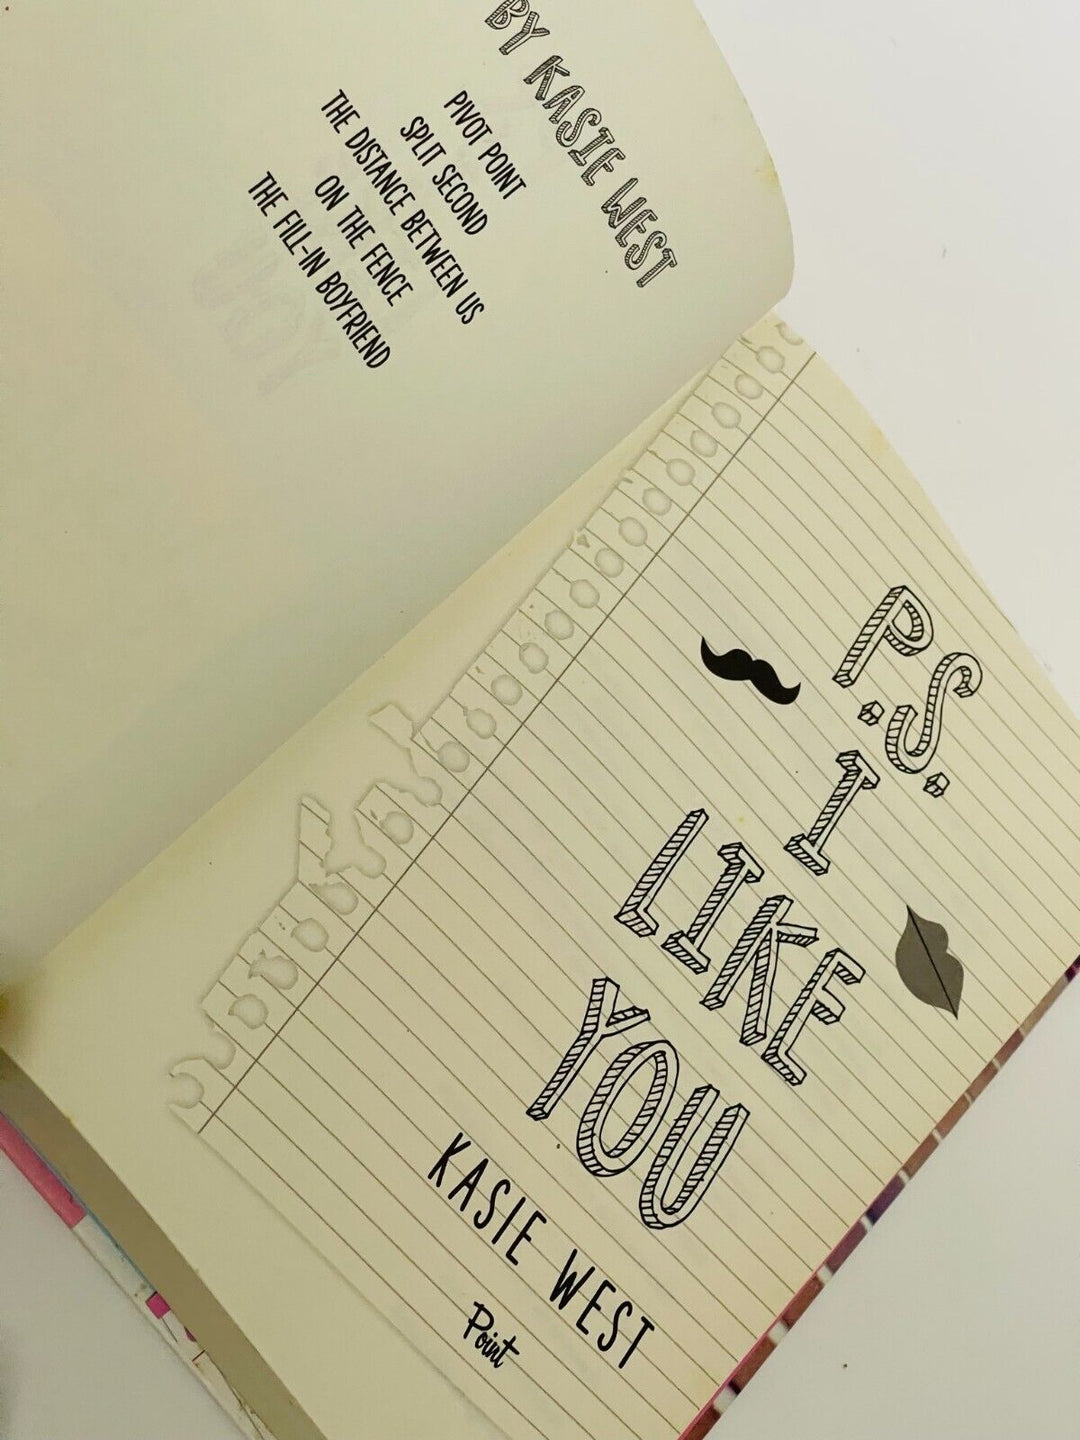 BY KASIE WEST
PIVOT POINT
SPLIT SECOND
THE DISTANCE BETWEEN US
ON THE FENCE
THE FILL-IN BOYFRIEND
P.S.
I
LIKE
YOU
KASIE WEST
Point